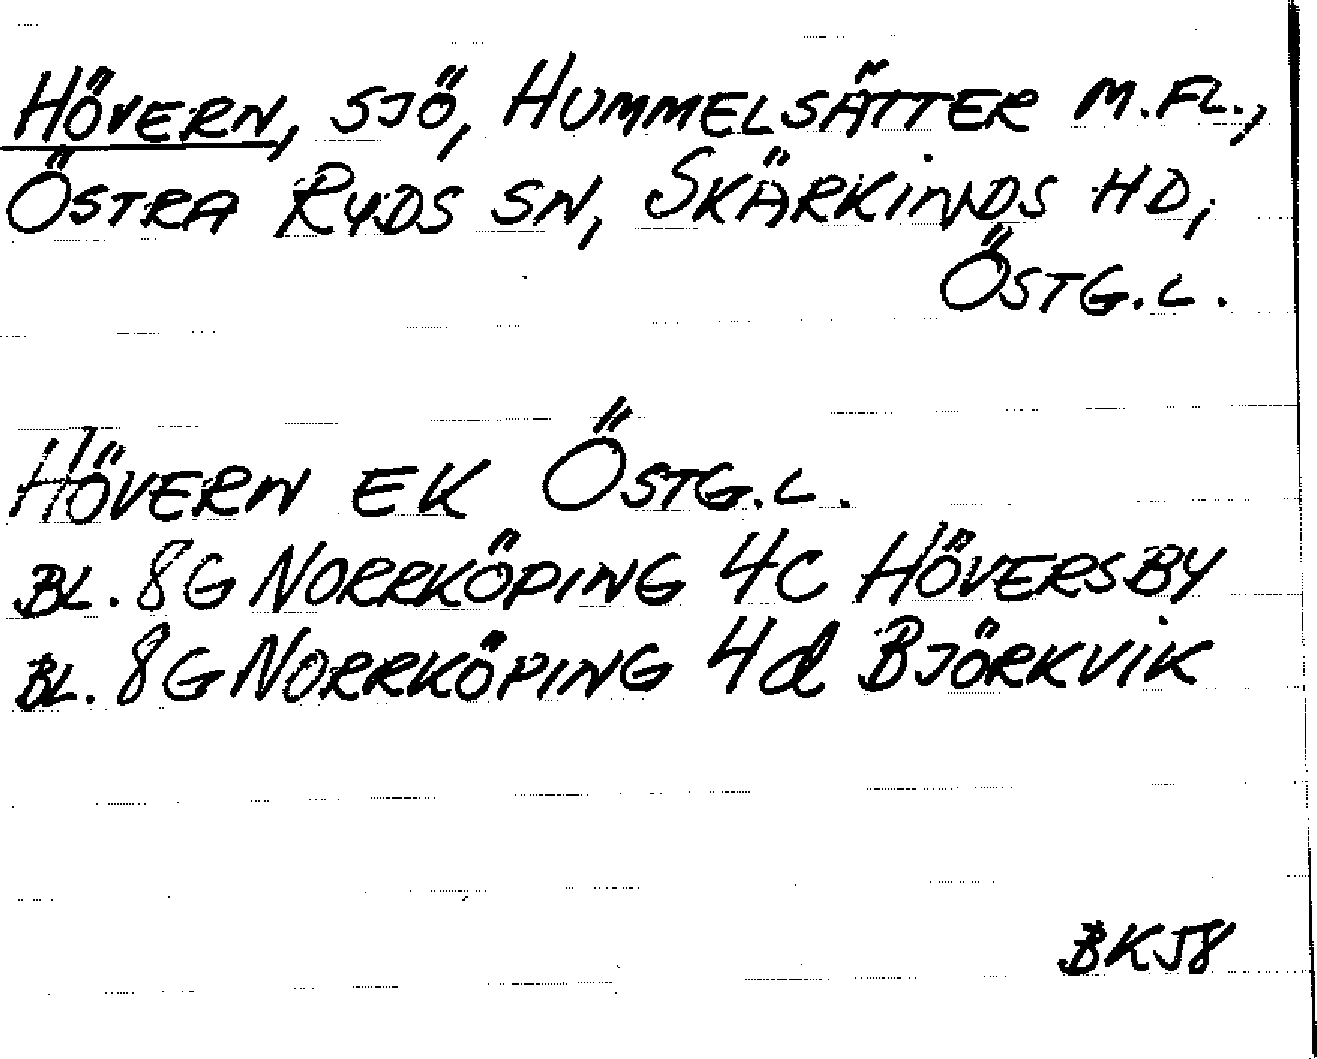 HÖVERN, SJÖ, HUMMELSÄTTER M.FL.,
ÖSTRA RYDS SN, SKÄRKINDS HD,
ÖSTG.L.
HÖVERN EK ÖSTG.L.
BL. 8G NORRKÖPING 4C HÖVERSBY
BL. 8G NORRKÖPING 4d BJÖRKVIK
BKJ8